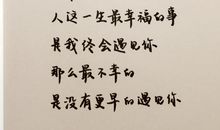 人这一生最幸福的事
是我终会遇见你
那么最不幸的
是没有更早的遇见你